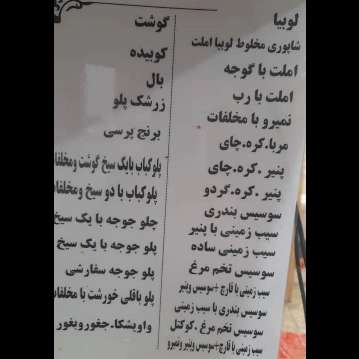 لوبیا
شاپوری مخلوط لوبیا املت
املت با گوجه
املت با رب
نمیرو با مخلفات
مربا.کره.چای
پنیر .کره.چای
پنیر .کره.گردو
سوسیس بندری
سیب زمینی با پنیر
سیب زمینی ساده
سوسیس تخم مرغ
سیب زمینی با قارچ +سوسیس وپنیر
سوسیس بندری با سیب زمینی
سوسیس تخم مرغ .کوکتل
سیب زمینی با قارچ+سوسیس وپنیر ونمیرو
گوشت
کوبیده
بال
زرشک پلو
برنج پرسی
پلوکباب بایک سیخ گوشت ومخلفات
پلوکباب با دو سیخ ومخلفات
چلو جوجه با یک سیخ
پلو جوجه با یک سیخ
پلو جوجه سفارشی
پلو باقلی خورشت با مخلفات
واویشکا.جغوروبغور